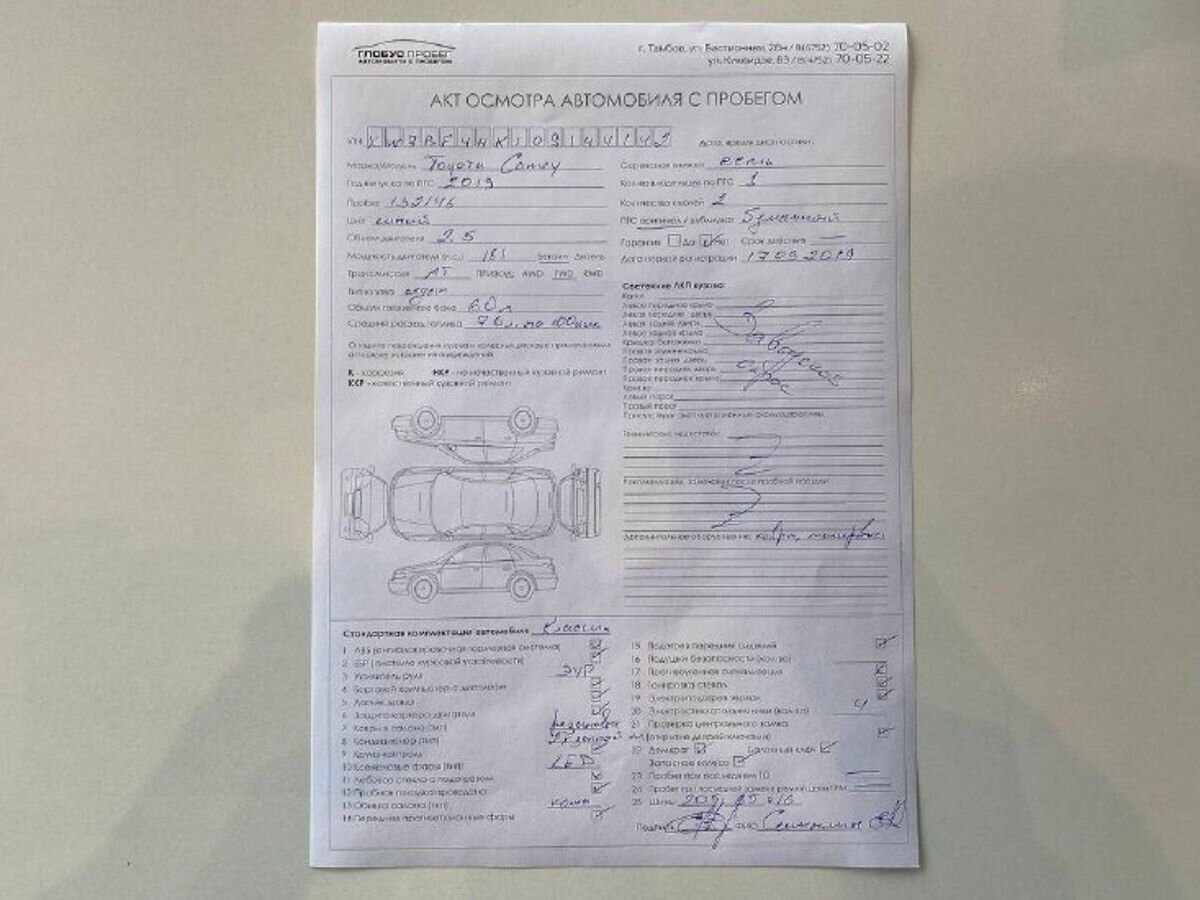 ГЛОБУС ПРОБЕГ
АВТОМОБИЛИ С ПРОБЕГОМ
г. Тамбов, ул. Бастионная, 28н / 8(4752) 70-05-02
ул. Киквидзе, 83 / 8(4752) 70-05-22
АКТ ОСМОТРА АВТОМОБИЛЯ С ПРОБЕГОМ
VIN XW7BF4HK10S144142
Дата, время диагностики:
Марка/Модель Toyota Camry
Год выпуска по ПТС 2019
Пробег 132146
Цвет синий
Объем двигателя 2.5
Мощность двигателя (л.с.) 181 Бензин Дизель
Трансмиссия АТ ПРИВОД: AWD FWD RWD
Тип кузова седан
Объем топливного бака 60 л
Средний расход топлива на 100 км
Сервисная книжка есть
Кол-во владельцев по ПТС 1
Количество ключей 2
ПТС оригинал / дубликат Бумажный
Гарантия Да Нет Срок действия
Дата первой регистрации 17 09 2019
Состояние ЛКП кузова:
Капот
Левое переднее крыло
Левая передняя дверь
Левая задняя дверь
Левое заднее крыло
Крышка багажника
Правое заднее крыло
Правая задняя дверь
Правая передняя дверь
Правое переднее крыло
Левый порог
Правый порог
Заводской окрас
К - коррозия НКР - не качественный кузовной ремонт
ККР - качественный кузовной ремонт
Технические недостатки:
Рекомендации, замечания после пробной поездки:
Дополнительное оборудование:
Стандартная комплектация автомобиля Классик
1 АБС (антиблокировочная тормозная система)
2 ESP (система курсовой устойчивости)
3 Усилитель руля ЭУР
4 Бортовой компьютер с дисплеем
5 Датчик дождя
6 Защита картера двигателя
7 Ковры в салоне (тип)
8 Кондиционер (тип)
9 Круиз-контроль
10 Ксеноновые фары (тип) LED
11 Лобовое стекло с подогревом
12 Пробная поездка проведена
13 Обивка салона (тип) кожа
14 Передние противотуманные фары
15 Подогрев передних сидений
16 Подушки безопасности (кол-во)
17 Противоугонная сигнализация
18 Тонировка стекол
19 Электроподогрев зеркал
20 Электростеклоподъемники (кол-во) 4
21 Проверка центрального замка
(открытие дверей ключами)
22 Домкрат Балонный ключ
Запасное колесо
23 Пробег при последнем ТО
24 Пробег при последней замене ремня/цепи ГРМ
25 Шины
Подпись ФИО